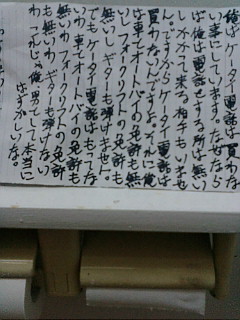 俺はケータイ電話は買わな
い事にしています。なぜなら
俺は電話する所は無い
しかかって来る相手もいませ
ん。ですからケータイ電話は
買わないんですよ。それに俺
は車でオートバイの免許も無
いしフォークリストの免許も
無いし ギターも弾けません。
でもケータイ電話はもってな
いわ 車でオートバイの免許も
無いわ フォークリフトの免許
も無いわ ギターも弾けない
わ これじゃ俺、男として本当に
はずかしいな。